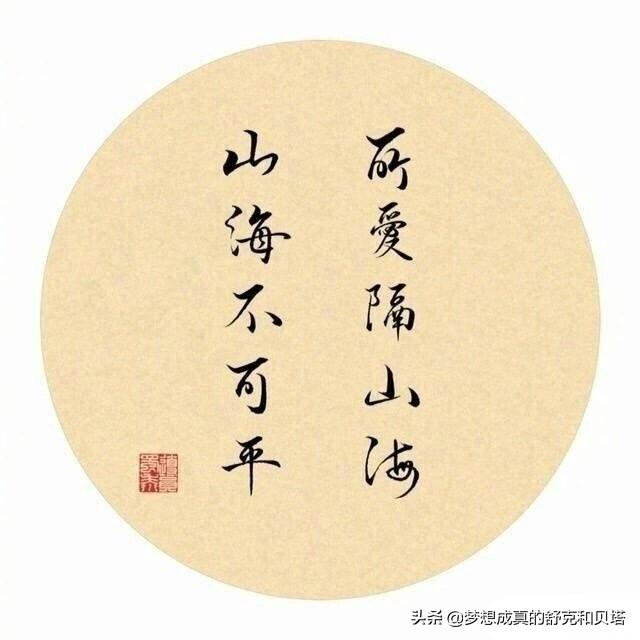 所愛隔山海
山海不可平
头条 @梦想成真的舒克和贝塔